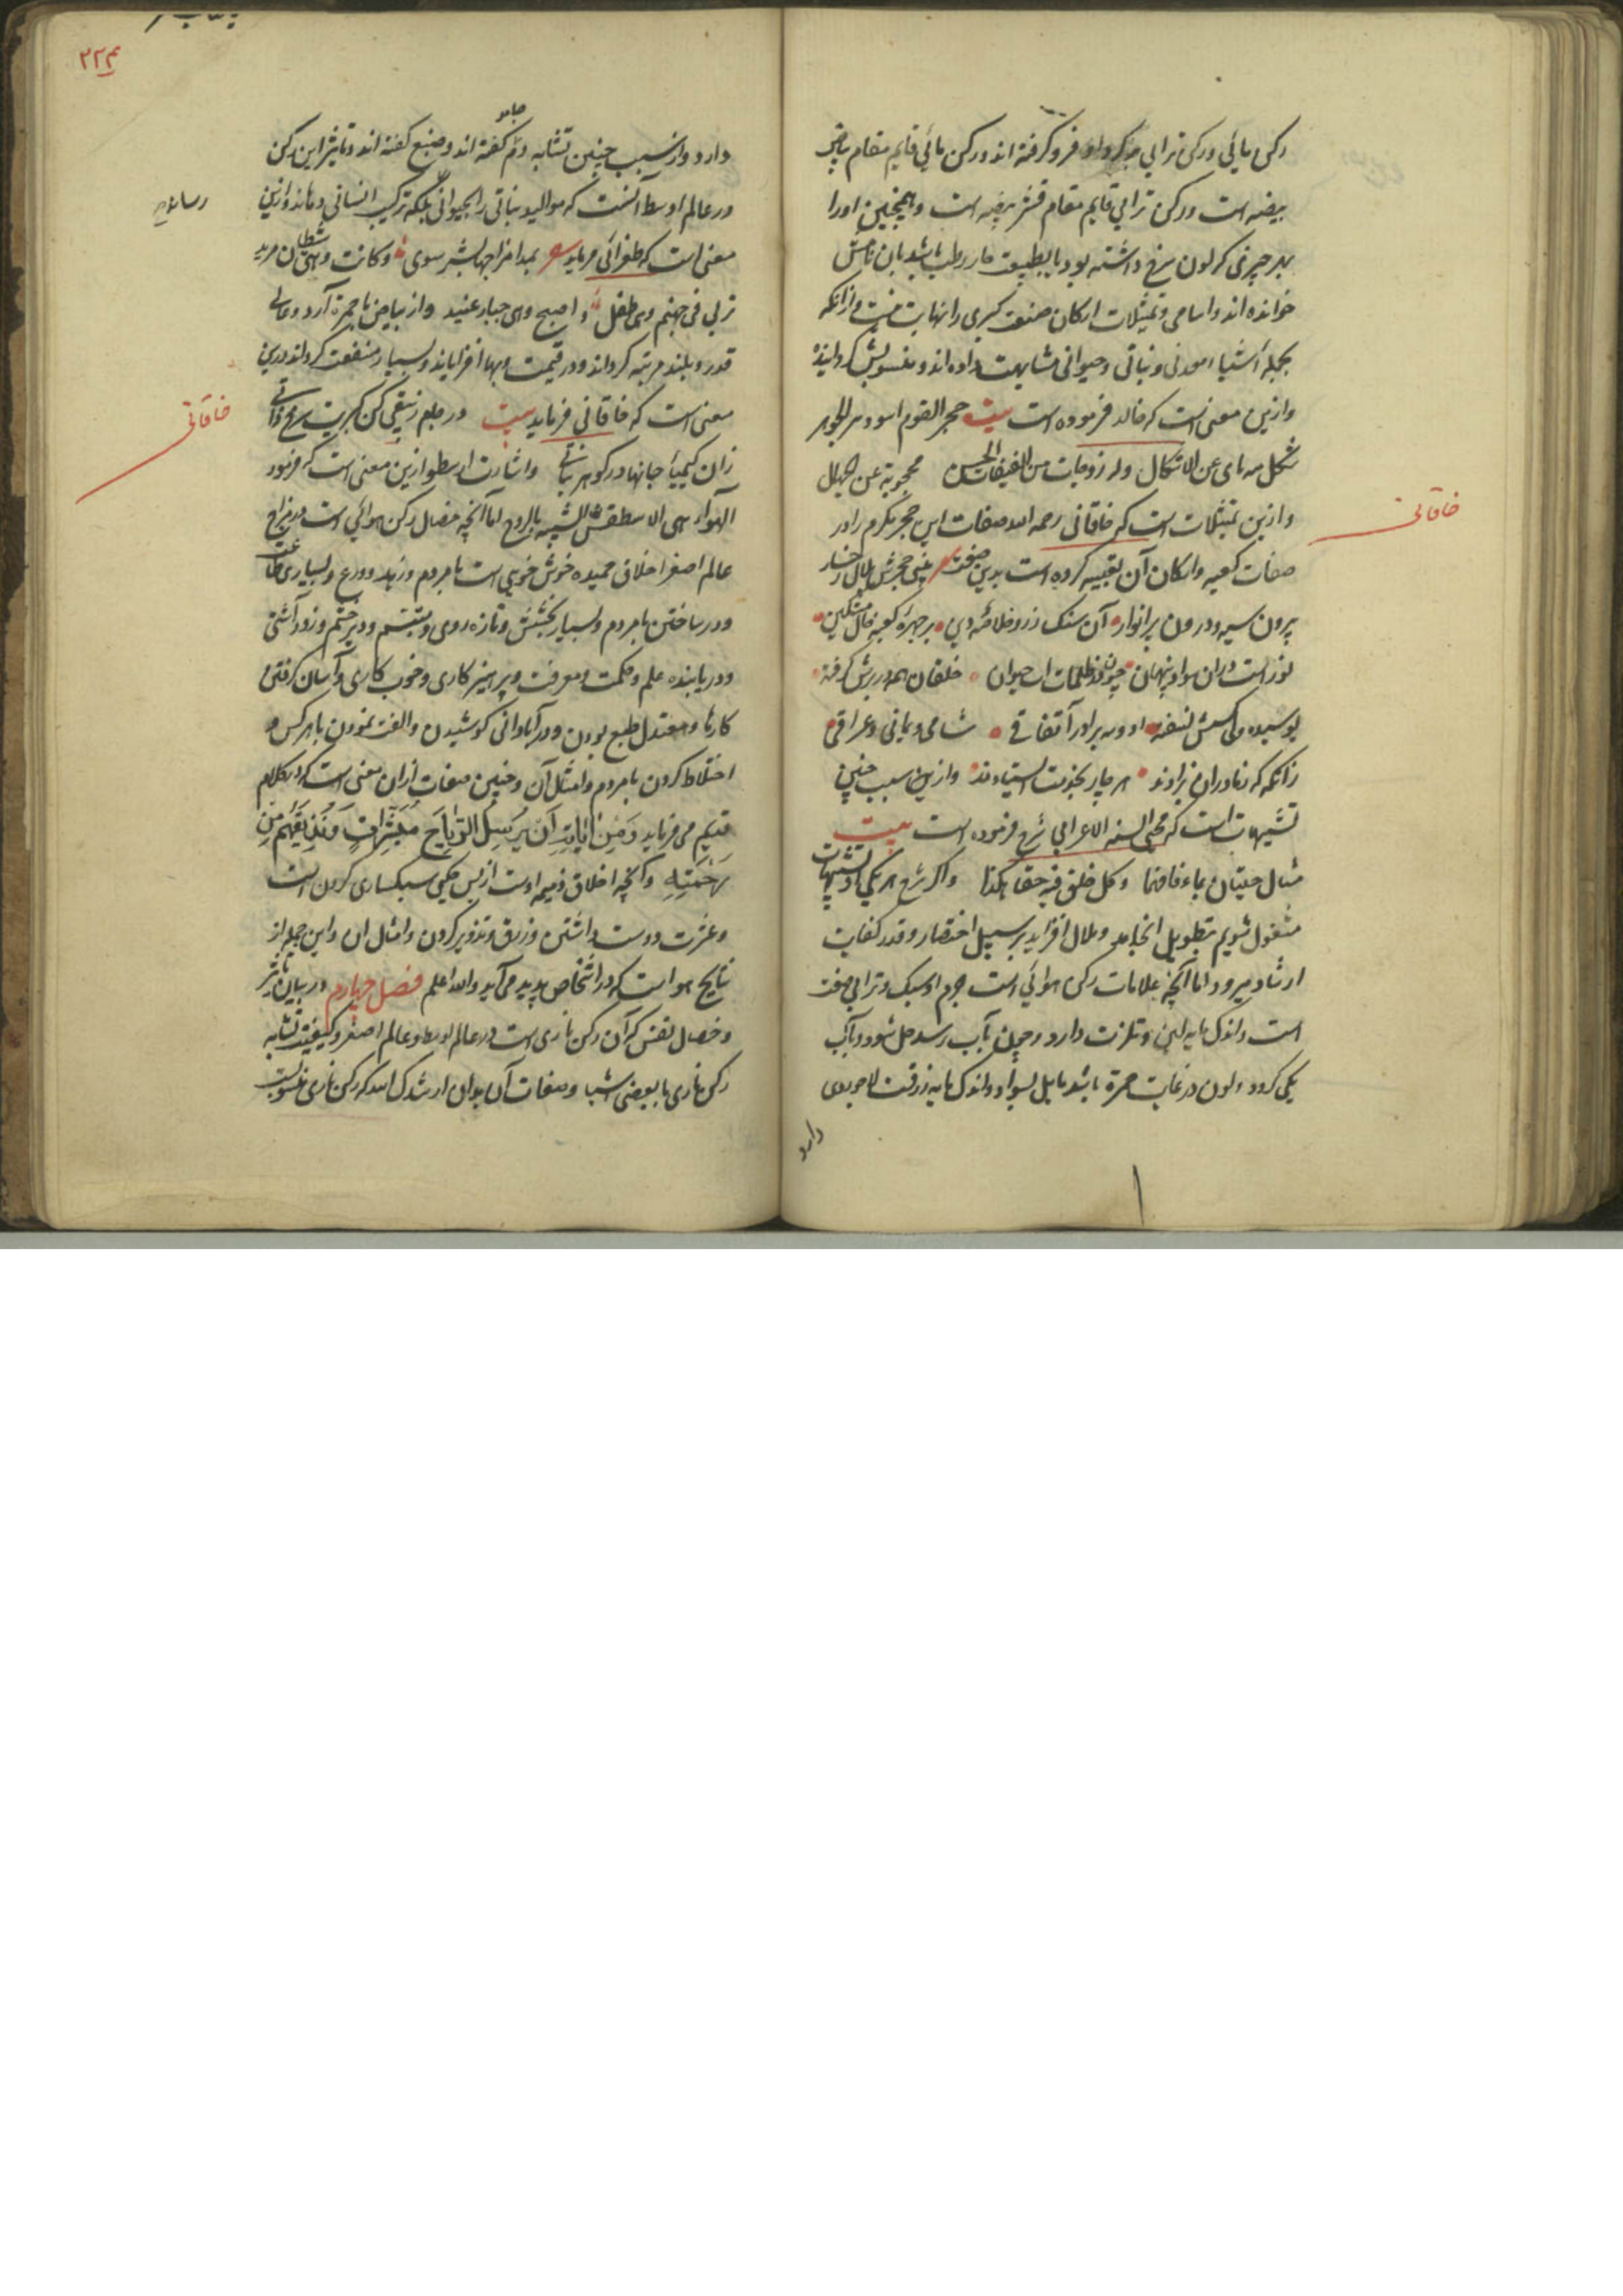 رکن مائی ورکن ترابی فرو کرفته اند ورکن مائی قایم مقام بیاض
بیضه است ورکن ترابی قایم مقام قشر بیضه است وهمچنین اورا
بهر چیزی که لون سرخ داشته بود یا بطبیعت حار رطب باشد بان نامش
خوانده اند واسامی وتمثیلات ارکان صنعت کبری را نهایت نیست از آنکه
بجمله اشیاء معدنی ونباتی وحیوانی مشابهت داده اند ومنسوبش کردانیده
وازین معنی است که خالد فرموده است بیت حجر القوم اسود
شکل مه نای عن الاشکال وله زوجات من محجوبة عن
وازین تمثیلات است که خاقانی رحمه الله صفات این حجر مکرم را در
صفات کعبه وارکان آن تعبیه کرده است بدین صفت بینی حجرش بلال رخسار
بیرون سیه ودرون پر انوار آن سنک زر خلاصه دین بر چهره کعبه خال مشکین
نور است دران سواد پنهان چون در ظلمات اب حیوان خلقان همه در برش کرفته
بوسیده وکس او وسه برادر آتفاقی شامی ویمانی وعراقی
زانکه که زمادران بزادند هر چار بخدمت ایستادند وازین سبب چنین
تشبیهات است که محیی السنه الاعرابی شرح فرموده است بیت
مثال وکل خلق فیه حقا هکذا واکر شرح هر یکی از تشبیهات
مشغول شویم بتطویل انجامد وملال افزاید بر سبیل اختصار وقدر کفایت
ارشاد میرود اما آنچه علامات رکن هوائی است جرم او سبک وترابی صفت
است واندک مایه لین وتلزت دارد وچون بآب رسد حل شود وبآب
یکی کردد ولون در غایت حمرة باشد مایل بسواد واندک مایه زرقت لاجوردی
دارد
خاقانی
۳۲۳
دارد واز سبب چنین تشابه دم جامد کفته اند وصبغ کفته اند وتاثیر این رکن
در عالم اوسط آنست که موالید نباتی را بحیوانی بلکه ترکیب انسانی رساند وازین
معنی است که طغرائی فرماید بمدامزاجها بشر سوی وکانت وهی شیطان مرید
تربی فی جهنم وهی طفل واصبح وهی جبار عنید واز بیاض با حمرة آرد وعالی
قدر وبلند مرتبه کرداند ودر قیمت وبها افزاید وبسیار منفعت کرداند درین
معنی است که خاقانی فرماید بیت در حلم زیبقی کن کبریت سرخ
زان کیمیاء جانها در کوهر واشارت ارسطو ازین معنی است که فرمود
الهواء هی الاسطقس الشبیه بالروح اما آنچه خصال رکن هوائی است در مزاج
عالم اصغر اخلاق حمیده خوش خوبی است با مردم وزهد وورع وبسیاری طاعت
ودر ساختن با مردم وبسیار بخشش وتازه روی ومتبسم ودیر خشم وزود آشتی
ودر یابنده علم وحکمت ومعرفت وپرهیزکاری وخوب کاری وآسان کرفتن
کارها ومعتدل طبع بودن ودر آبادانی کوشیدن والفت نمودن با هرکس و
اختلاط کردن با مردم وامثال آن وچنین صفات ازان معنی است که در کلام
قدیم می فرماید وَمِنْ اٰیَاتِهِ اَنْ یُرْسِلَ الرِّیَاحَ مُبَشِّرَاتٍ وَلِیُذِیقَکُمْ مِنْ
رَحْمَتِهِ وآنچه اخلاق ذمیمه اوست از بس حکیمی سبکساری کردن است
وعشرت دوست داشتن وزرق وتزویر کردن وامثال ان واین جمله از
نتایج هواست که در اشخاص پدید می آید والله اعلم فصل چهارم در بیان تاثیر
وخصال نفس که آن رکن ناری است در عالم اوسط وعالم اصغر وکیفیت تشابه
رکن ناری با بعضی اشیا وصفات آن بدان ارشدک الله که رکن ناری منسوبست
خاقانی